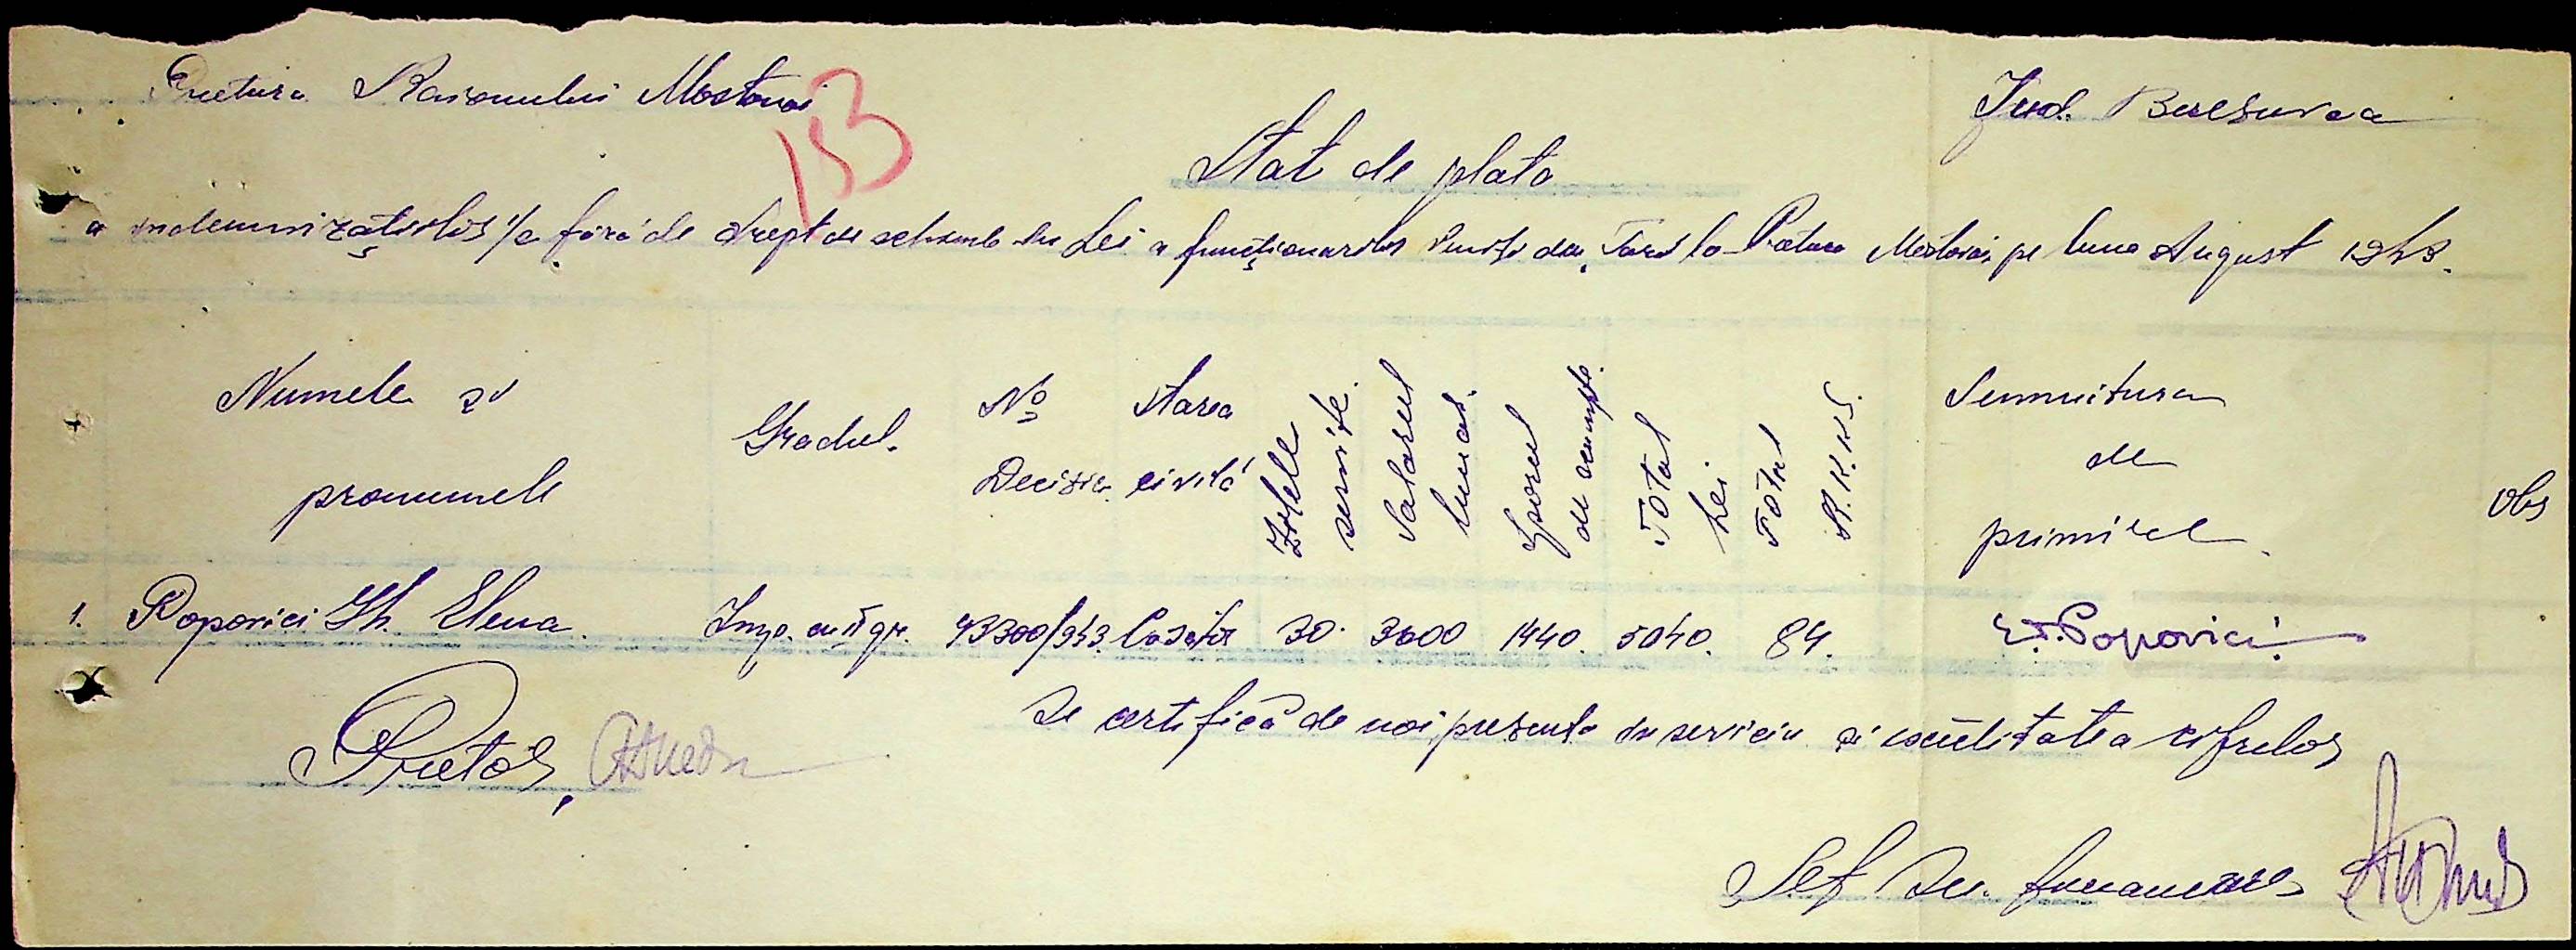 Pretura Raionului Mostovoi
Jud. Beresovca
153
Stat de plata
a indemnizațiilor fără de drept de schimb în Lei a funcționarilor veniți din Țară la Pretura Mostovoi, pe luna August 1943.
Numele și pronumele
Gradul.
No Decizie
Starea civilă
Zilele servite.
Salarul lunar.
Sporul de scumpte.
Total Lei
Total R.K.K.S.
Semnitura de primire
Obs
1. Popovici Gh. Elena. Imp. cu II gr. 43300/943. Casăta 30. 3600 1440. 5040. 84. E. Popovici
Se certifică de noi, prezenta în serviciu și exactitatea cifrelor
Pretor,
Șef Sv. financiare